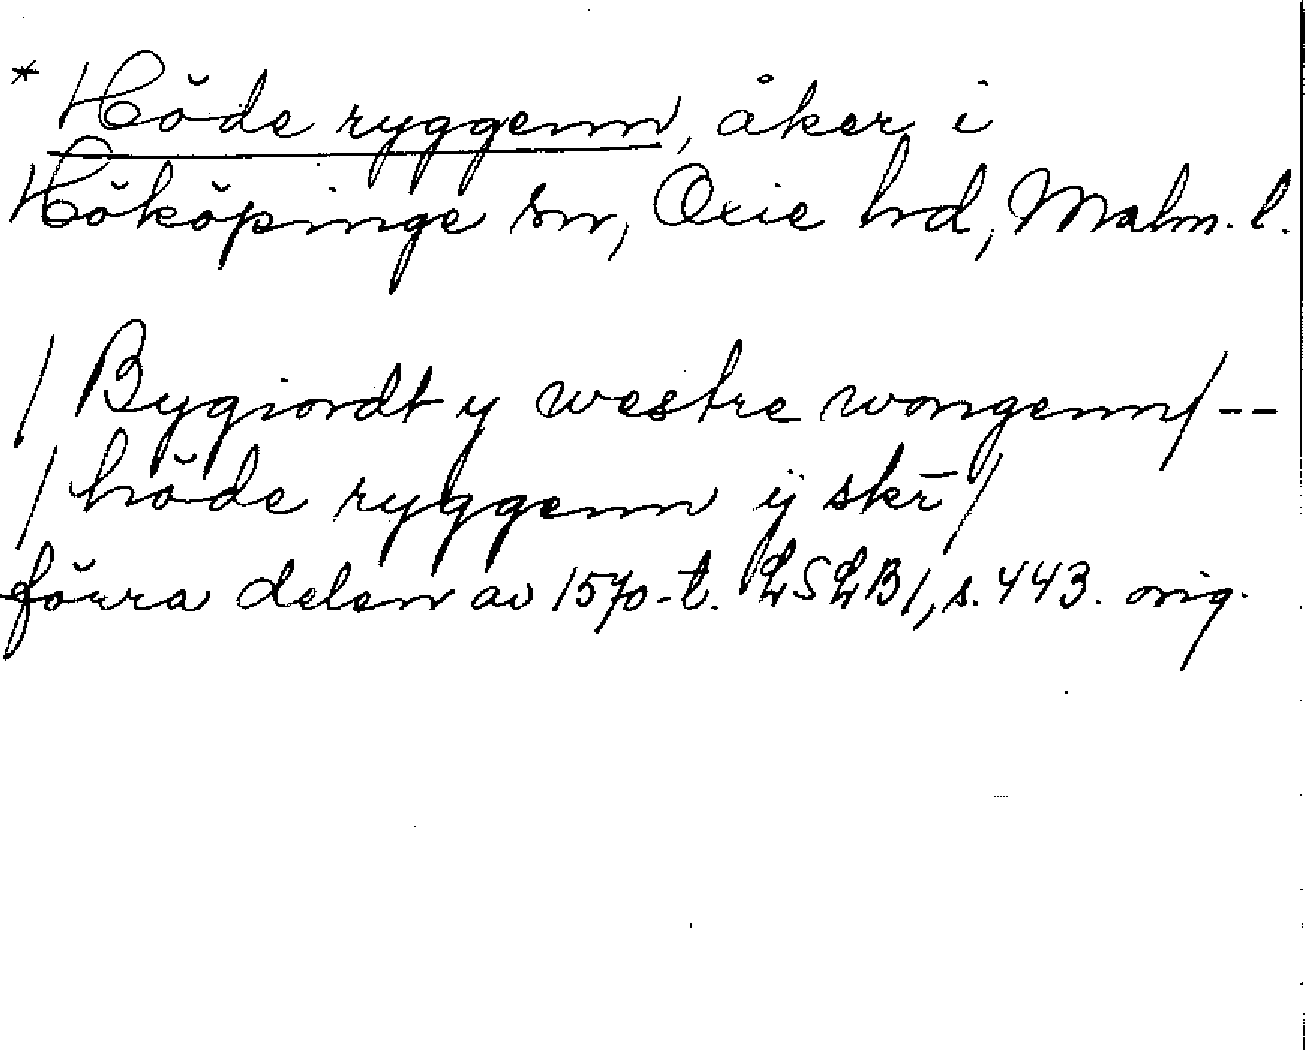 * Höde ryggenn, åker i
Hököpinge sn, Oxie hd, Malm. l.
/ Bygiordt y westre wongenn/ --
/ höde ryggenn ÿ skr̄ /
förra delen av 1570-t. LSLB1, s. 443. orig.